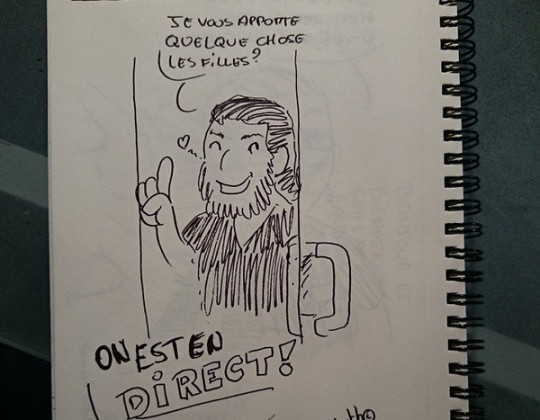 JE VOUS APPORTE
QUELQUE CHOSE
LES FILLES?
ON EST EN
DIRECT!